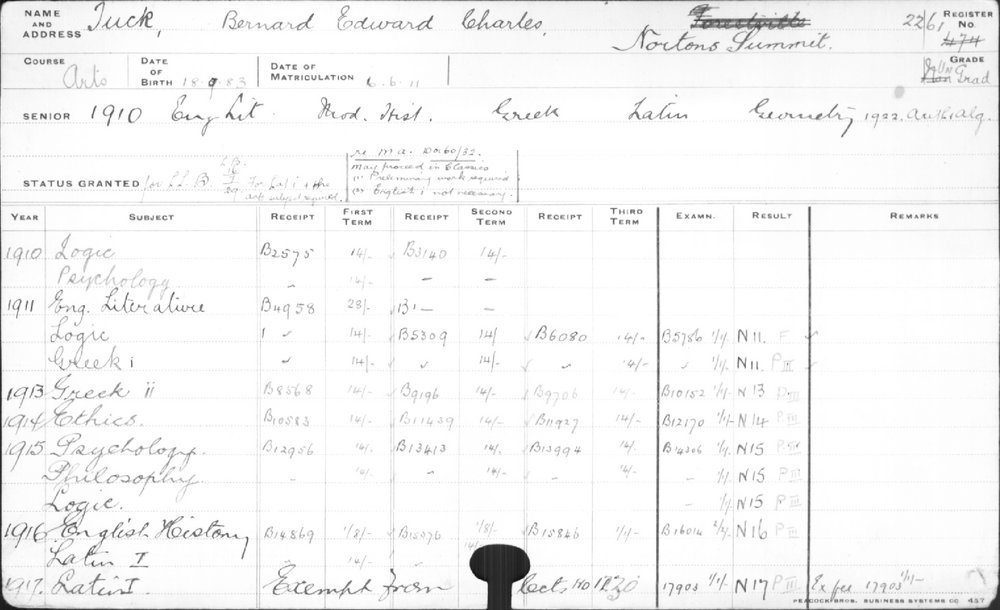 NAME AND ADDRESS Tuck, Bernard Edward Charles. Nortons Summit. 22/61 REGISTER No 474
COURSE Arts DATE OF BIRTH 18.9.83 DATE OF MATRICULATION 6.6.11 GRADE Grad
SENIOR 1910 Eng Lit Mod. Hist. Greek Latin Geometry 1922. Arith & Alg.
STATUS GRANTED for LL.B.
re M.A. Do 160/32.
may proceed in Classics
(1) Preliminary work required
(2) English i not necessary.
YEAR SUBJECT RECEIPT FIRST TERM RECEIPT SECOND TERM RECEIPT THIRD TERM EXAMN. RESULT REMARKS
1910 Logic B2575 14/- B3140 14/-
Psychology 14/- – –
1911 Eng. Literature B4958 28/- B1 – –
Logic 14/- B5309 14/ B6080 14/- B5786 1/1/- N 11. F
Greek i 14/- 14/- 14/- 1/1/- N 11. P III
1913 Greek ii B8568 14/- B9196 14/- B9706 14/- B10152 1/1/- N 13 P III
1914 Ethics. B10583 14/- B11439 14/- B11927 14/- B12170 1/1/- N 14 P III
1915 Psychology. B12956 14/- B13413 14/- B13994 14/- B14306 1/1/- N 15 P III
Philosophy. 14/- 14/- 14/- – 1/1/- N 15 P III
Logic. – 1/1/- N 15 P III
1916 English History B14869 1/8/- B15376 1/8/- B15846 1/1/- B16014 2/2/- N 16 P III
Latin I 14/- 14/-
1917. Latin I. Exempt from Lects no 17.30 17903 1/1/- N 17 P III Ex fee 17903 1/1/-
PEACOCK BROS. BUSINESS SYSTEMS CO 457